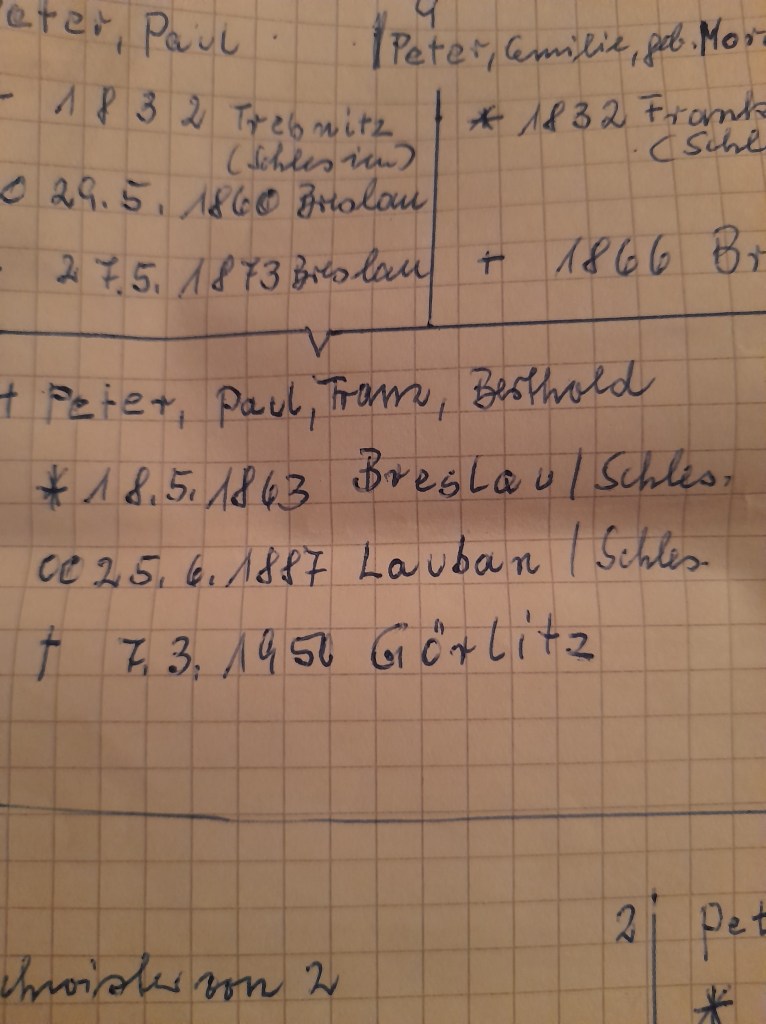 eter, Paul
4
Peter, Emilie, geb. Mor
1832 Trebnitz
(Schlesien)
* 1832 Frank
(Schl
29.5.1860 Breslau
27.5.1873 Breslau
+ 1866 Br
+ Peter, Paul, Franz, Berthold
* 18.5.1863 Breslau / Schles.
oo 25.6.1887 Lauban / Schles.
† 7.3.1950 Görlitz
2
Pet
chwister von 2
*